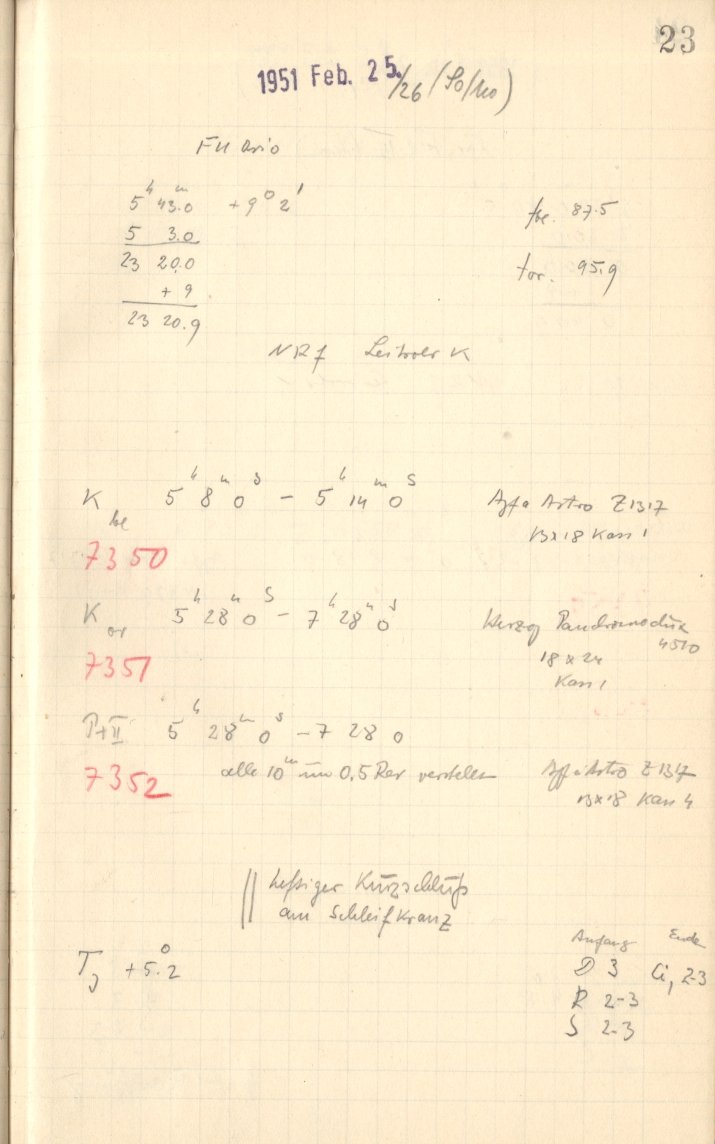 23
1951 Feb. 25./26 (So/Mo)
FU Orio
5h 43.0m +9° 2'
5 3.0
23 20.0
+ 9
23 20.9
fbe. 87.5
for. 95.9
NRf Leitrohr K
K be 5h 8m 0s – 5h 14m 0s Agfa Astro Z1317
13x18 Kass 1
7350
K or 5h 28m 0s – 7h 28m 0s Herzog 4510
18 x 24
Kass 1
7351
P+II 5h 28m 0s – 7 28 0
7352 alle 10m um 0,5 Rev verstellen Agfa Astro Z1317
13x18 Kass 4
heftiger Kurzschluß
am Schleifkranz
TJ +5.°2
Anfang Ende
D 3 Ci, 2-3
R 2-3
S 2-3